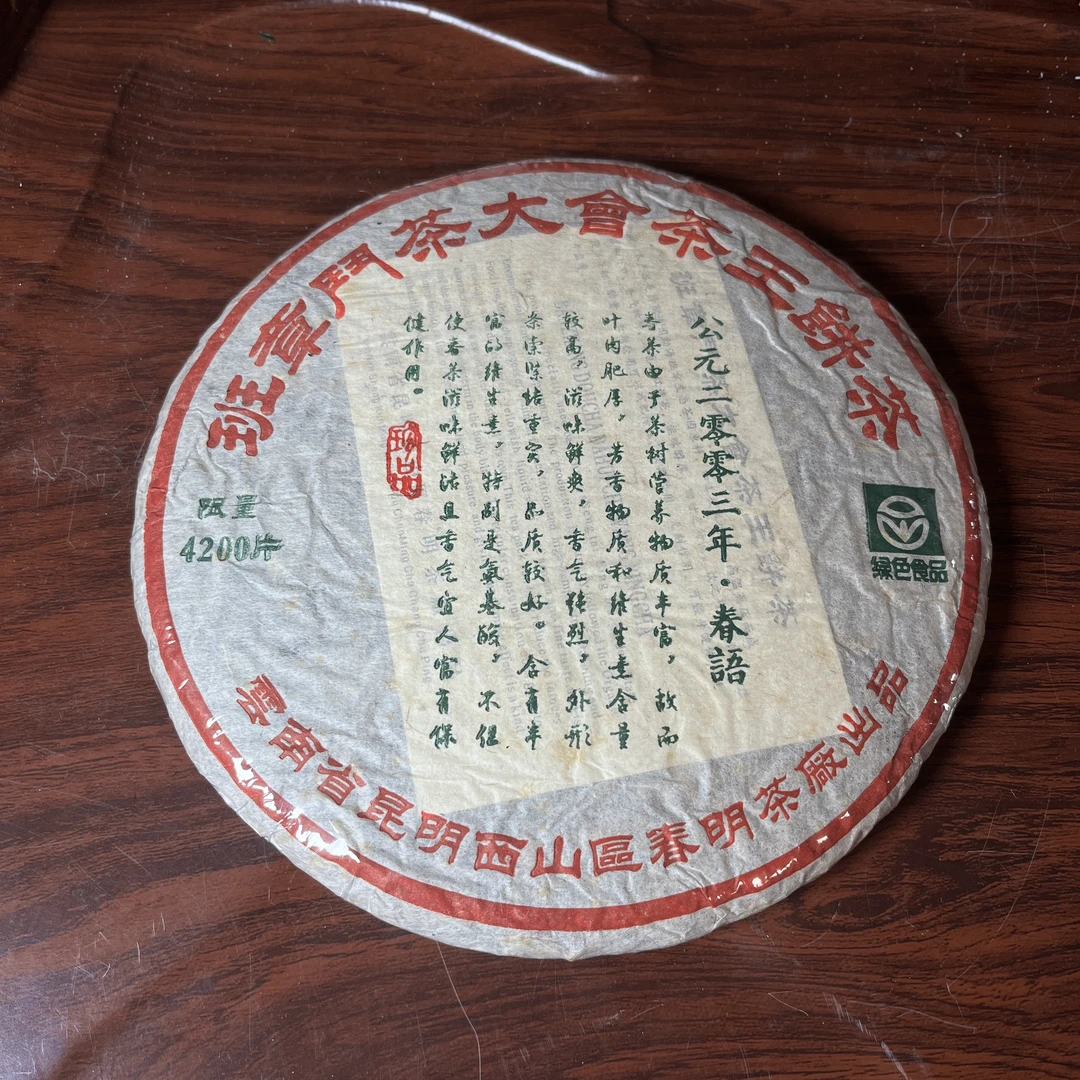 班章鬥茶大會茶王餅茶
公元二零零三年·春語
春茶由于茶树营养物质丰富，故而
叶肉肥厚，芳香物质和维生素含量
较高，滋味鲜爽，香气强烈，外形
条索紧结重实，品质较好。含有丰
富的维生素，特别是氨基酸，不但
使春茶滋味鲜活且香气宜人富有保
健作用。
珍品
限量
4200片
綠色食品
雲南省昆明西山區春明茶廠出品